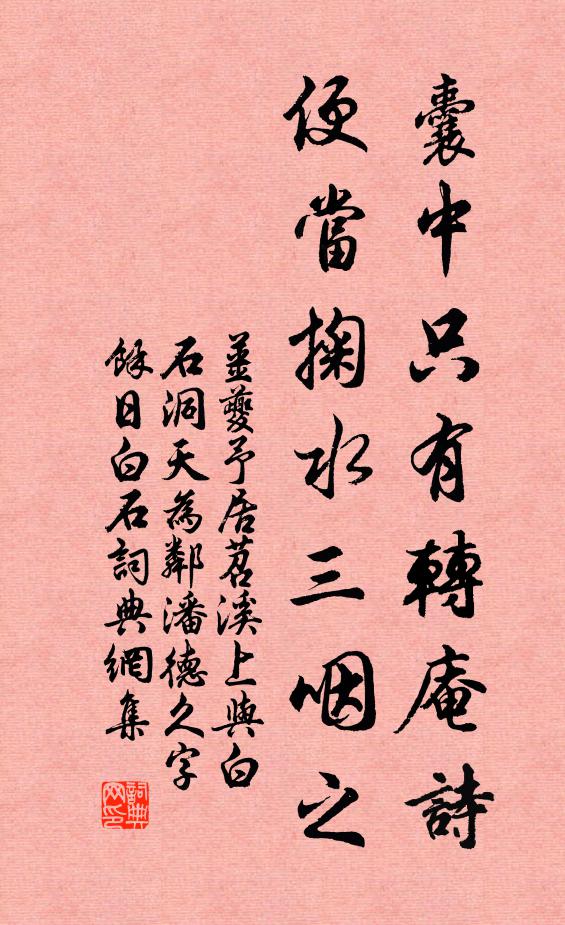 囊中只有轉庵詩
便當掬水三咽之
姜夔予居苕溪上與白
石洞天為鄰潘德久字
餘曰白石詞典網集
詞典网印